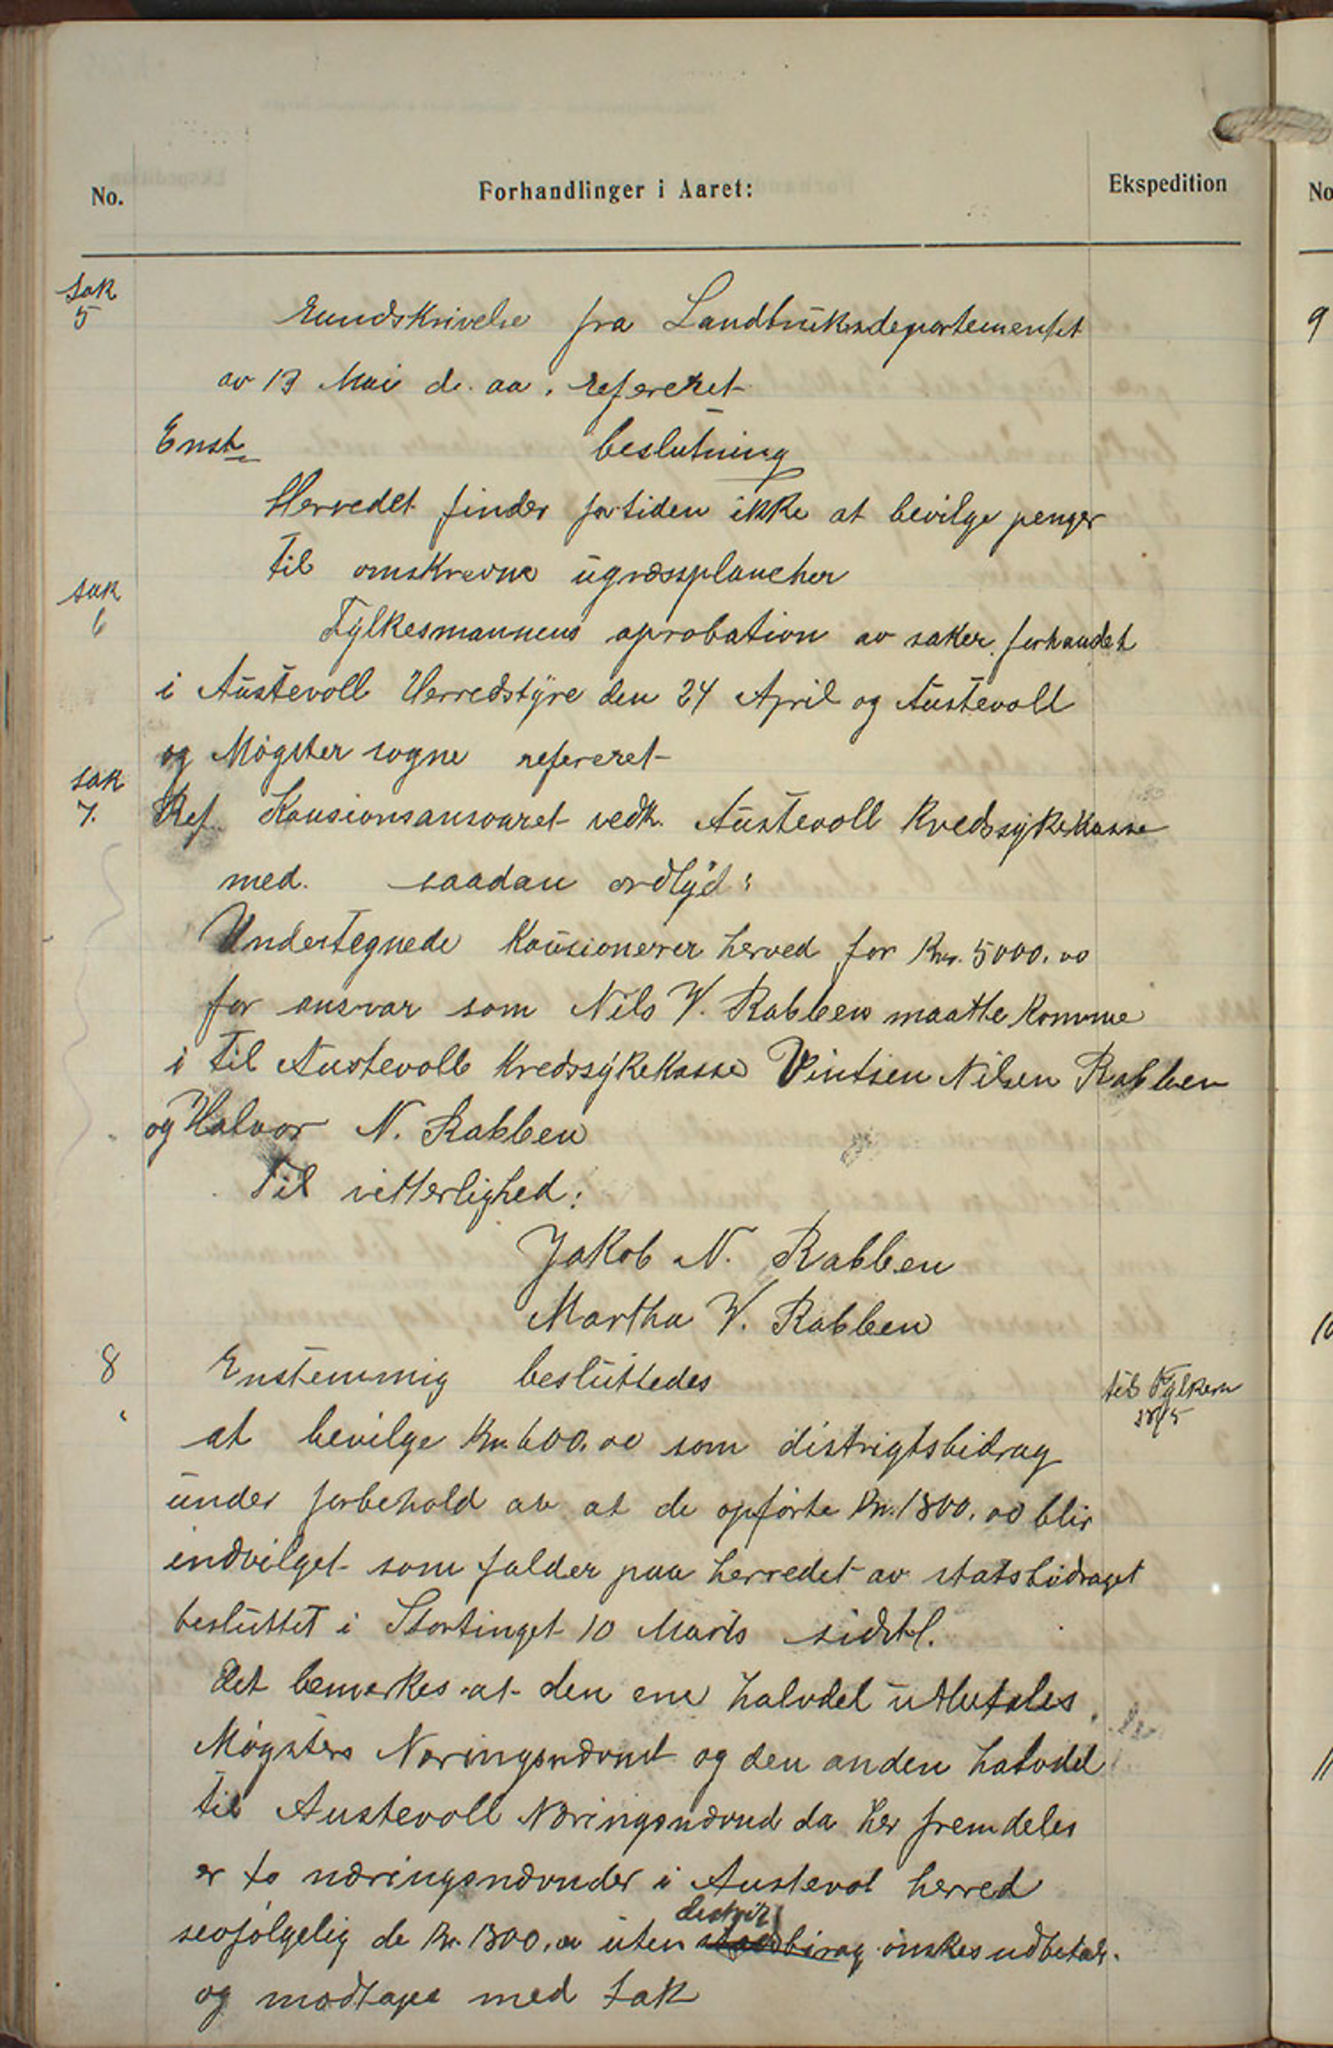 No. Forhandlinger i Aaret: Ekspedition No
Sak
5
Rundskrivelse fra Landbruksdepartementet
av 13 Mai d. aa. refereret
Enst. beslutning
Herredet finder fortiden ikke at bevilge penger
til omskrevne ugræssplancher
sak
6
Fylkesmannens aprobation av saker forhandlet
i Austevoll Herredstyre den 24 April og Austevoll
og Møgster sogne refereret
sak
7.
Ref Kausionsansvaret vedk. Austevoll Kredssykekasse
med. saadan ordlyd:
Undertegnede kausionerer herved for Kr. 5000.00
for ansvar som Nils V. Rabben maatte komme
i til Austevoll Kredssykekasse Vintsen Nilsen Rabben
og Halvor N. Rabben
Til vitterlighed:
Jakob N. Rabben
Martha V. Rabben
8
Enstemmig besluttedes
til Fylkem
at bevilge Kr. 600.00 som distrigtsbidrag
under forbehold av at de opførte Kr. 1800.00 blir
indvilget som falder paa herredet av statsbidraget
besluttet i Stortinget 10 Marts sidstl.
Det bemerkes at den ene halvdel utbetales
Møgsters Næringsnævnd og den anden halvdel
til Austevoll Næringsnævnd da her fremdeles
er to næringsnævnder i Austevol herred
distrik
selvfølgelig de Kr. 1800.00 uten birag ønskes udbetalt.
og modtages med tak
9
10
11